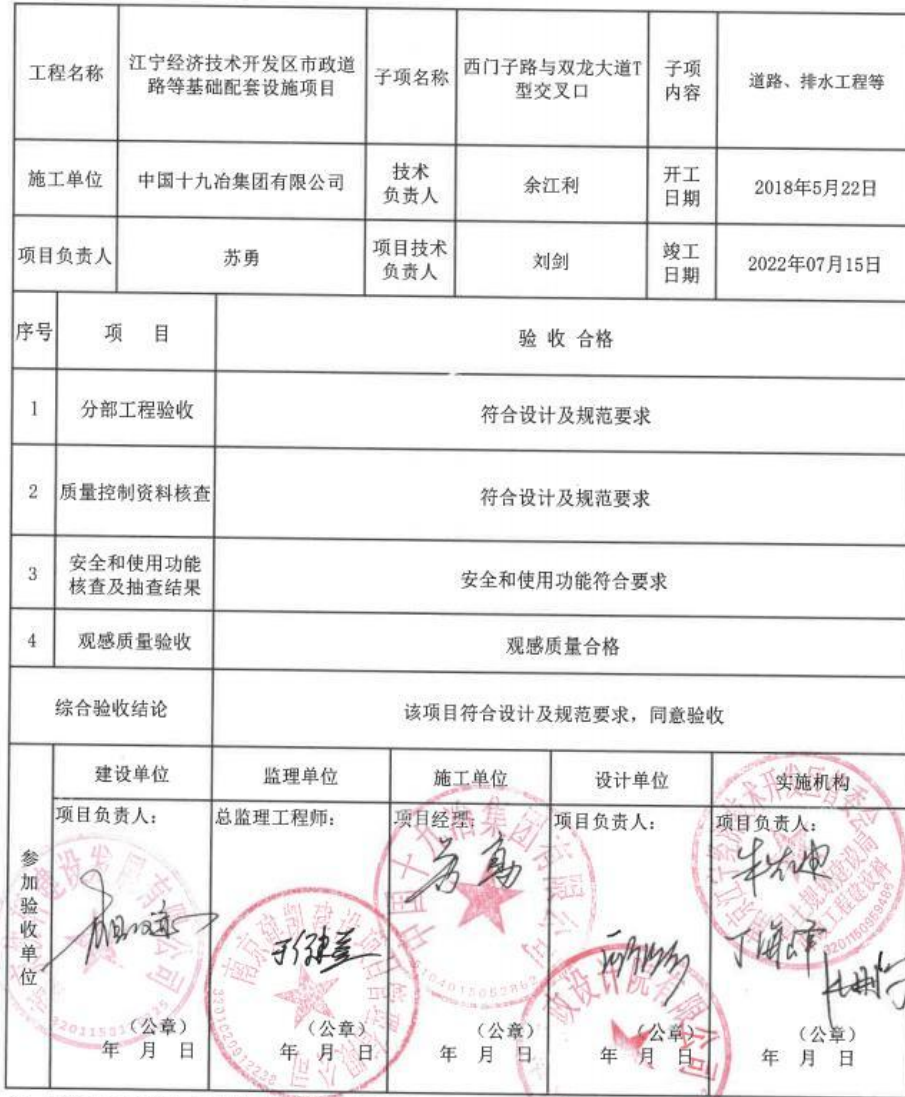 工程名称 江宁经济技术开发区市政道路等基础配套设施项目 子项名称 西门子路与双龙大道T型交叉口 子项内容 道路、排水工程等
施工单位 中国十九冶集团有限公司 技术负责人 余江利 开工日期 2018年5月22日
项目负责人 苏勇 项目技术负责人 刘剑 竣工日期 2022年07月15日
序号 项 目 验 收 合格
1 分部工程验收 符合设计及规范要求
2 质量控制资料核查 符合设计及规范要求
3 安全和使用功能核查及抽查结果 安全和使用功能符合要求
4 观感质量验收 观感质量合格
综合验收结论 该项目符合设计及规范要求，同意验收
参加验收单位
建设单位 监理单位 施工单位 设计单位 实施机构
项目负责人： 总监理工程师： 项目经理： 项目负责人： 项目负责人：
（公章） （公章） （公章） （公章） （公章）
年 月 日 年 月 日 年 月 日 年 月 日 年 月 日
中国十九冶集团有限公司